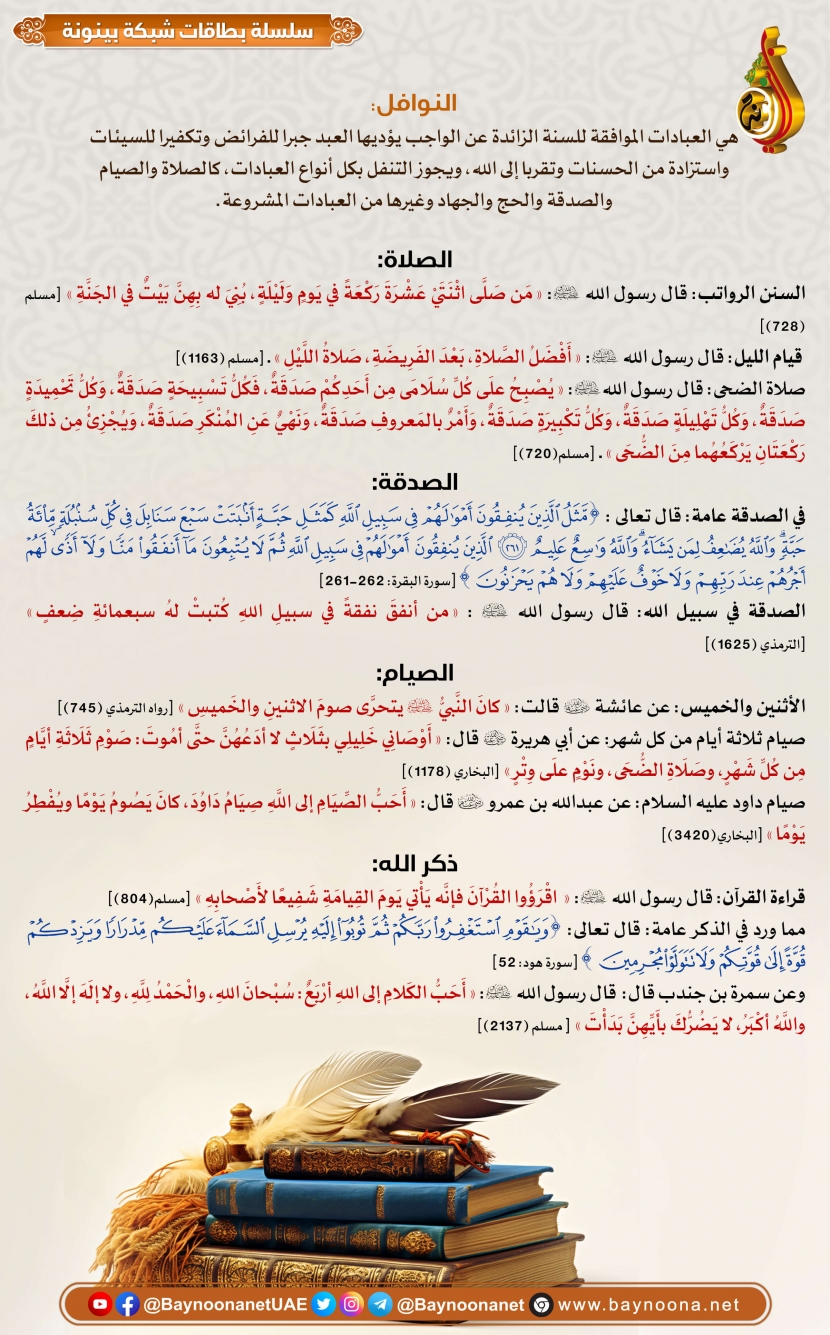 سلسلة بطاقات شبكة بينونة
النوافل:
هي العبادات الموافقة للسنة الزائدة عن الواجب يؤديها العبد جبرا للفرائض وتكفيرا للسيئات
واستزادة من الحسنات وتقربا إلى الله، ويجوز التنفل بكل أنواع العبادات، كالصلاة والصيام
والصدقة والحج والجهاد وغيرها من العبادات المشروعة.
الصلاة:
السنن الرواتب: قال رسول الله ﷺ: « مَن صَلَّى اثْنَتَيْ عَشْرَةَ رَكْعَةً في يَومٍ وَلَيْلَةٍ، بُنِيَ له بِهِنَّ بَيْتٌ في الجَنَّةِ » [مسلم
(728)]
قيام الليل: قال رسول الله ﷺ: « أَفْضَلُ الصَّلاةِ، بَعْدَ الفَرِيضَةِ، صَلاةُ اللَّيْلِ ». [مسلم (1163)]
صلاة الضحى: قال رسول الله ﷺ: « يُصْبِحُ علَى كُلِّ سُلَامَى مِن أَحَدِكُمْ صَدَقَةٌ، فَكُلُّ تَسْبِيحَةٍ صَدَقَةٌ، وَكُلُّ تَحْمِيدَةٍ
صَدَقَةٌ، وَكُلُّ تَهْلِيلَةٍ صَدَقَةٌ، وَكُلُّ تَكْبِيرَةٍ صَدَقَةٌ، وَأَمْرٌ بالمَعروفِ صَدَقَةٌ، وَنَهْيٌ عَنِ المُنْكَرِ صَدَقَةٌ، وَيُجْزِئُ مِن ذلكَ
رَكْعَتَانِ يَرْكَعُهُما مِنَ الضُّحَى ». [مسلم(720)]
الصدقة:
في الصدقة عامة: قال تعالى : ﴿مَّثَلُ الَّذِينَ يُنفِقُونَ أَمْوَالَهُمْ فِي سَبِيلِ اللَّهِ كَمَثَلِ حَبَّةٍ أَنبَتَتْ سَبْعَ سَنَابِلَ فِي كُلِّ سُنبُلَةٍ مِّائَةُ
حَبَّةٍ وَاللَّهُ يُضَاعِفُ لِمَن يَشَاءُ وَاللَّهُ وَاسِعٌ عَلِيمٌ ٢٦١ الَّذِينَ يُنفِقُونَ أَمْوَالَهُمْ فِي سَبِيلِ اللَّهِ ثُمَّ لَا يُتْبِعُونَ مَا أَنفَقُوا مَنًّا وَلَا أَذًى لَّهُمْ
أَجْرُهُمْ عِندَ رَبِّهِمْ وَلَا خَوْفٌ عَلَيْهِمْ وَلَا هُمْ يَحْزَنُونَ ﴾ [سورة البقرة: 262-261]
الصدقة في سبيل الله: قال رسول الله ﷺ : « من أنفقَ نفقةً في سبيلِ اللهِ كُتبتْ لهُ سبعمائةِ ضِعفٍ »
[الترمذي (1625)]
الصيام:
الأثنين والخميس: عن عائشة رضي الله عنها قالت: « كانَ النَّبيُّ ﷺ يتحرَّى صومَ الاثنينِ والخَميسِ » [رواه الترمذي (745)]
صيام ثلاثة أيام من كل شهر: عن أبي هريرة رضي الله عنه قال: « أَوْصَانِي خَلِيلِي بثَلَاثٍ لا أدَعُهُنَّ حتَّى أمُوتَ: صَوْمِ ثَلَاثَةِ أيَّامٍ
مِن كُلِّ شَهْرٍ، وصَلَاةِ الضُّحَى، ونَوْمٍ علَى وِتْرٍ» [البخاري (1178)]
صيام داود عليه السلام: عن عبدالله بن عمرو رضي الله عنه قال: « أَحَبُّ الصِّيَامِ إلى اللَّهِ صِيَامُ دَاوُدَ، كانَ يَصُومُ يَوْمًا ويُفْطِرُ
يَوْمًا » [البخاري(3420)]
ذكر الله:
قراءة القرآن: قال رسول الله ﷺ: « اقْرَؤُوا القُرْآنَ فإنَّه يَأْتي يَومَ القِيامَةِ شَفِيعًا لأَصْحابِهِ » [مسلم(804)]
مما ورد في الذكر عامة: قال تعالى: ﴿وَيَا قَوْمِ اسْتَغْفِرُوا رَبَّكُمْ ثُمَّ تُوبُوا إِلَيْهِ يُرْسِلِ السَّمَاءَ عَلَيْكُم مِّدْرَارًا وَيَزِدْكُمْ
قُوَّةً إِلَىٰ قُوَّتِكُمْ وَلَا تَتَوَلَّوْا مُجْرِمِينَ ﴾ [سورة هود: 52]
وعن سمرة بن جندب قال: قال رسول الله ﷺ: « أَحَبُّ الكَلامِ إلى اللهِ أرْبَعٌ: سُبْحانَ اللهِ، والْحَمْدُ لِلَّهِ، ولا إلَهَ إلَّا اللَّهُ،
واللَّهُ أكْبَرُ، لا يَضُرُّكَ بأَيِّهِنَّ بَدَأْتَ » [مسلم (2137)]
@BaynoonanetUAE @Baynoonanet www.baynoona.net